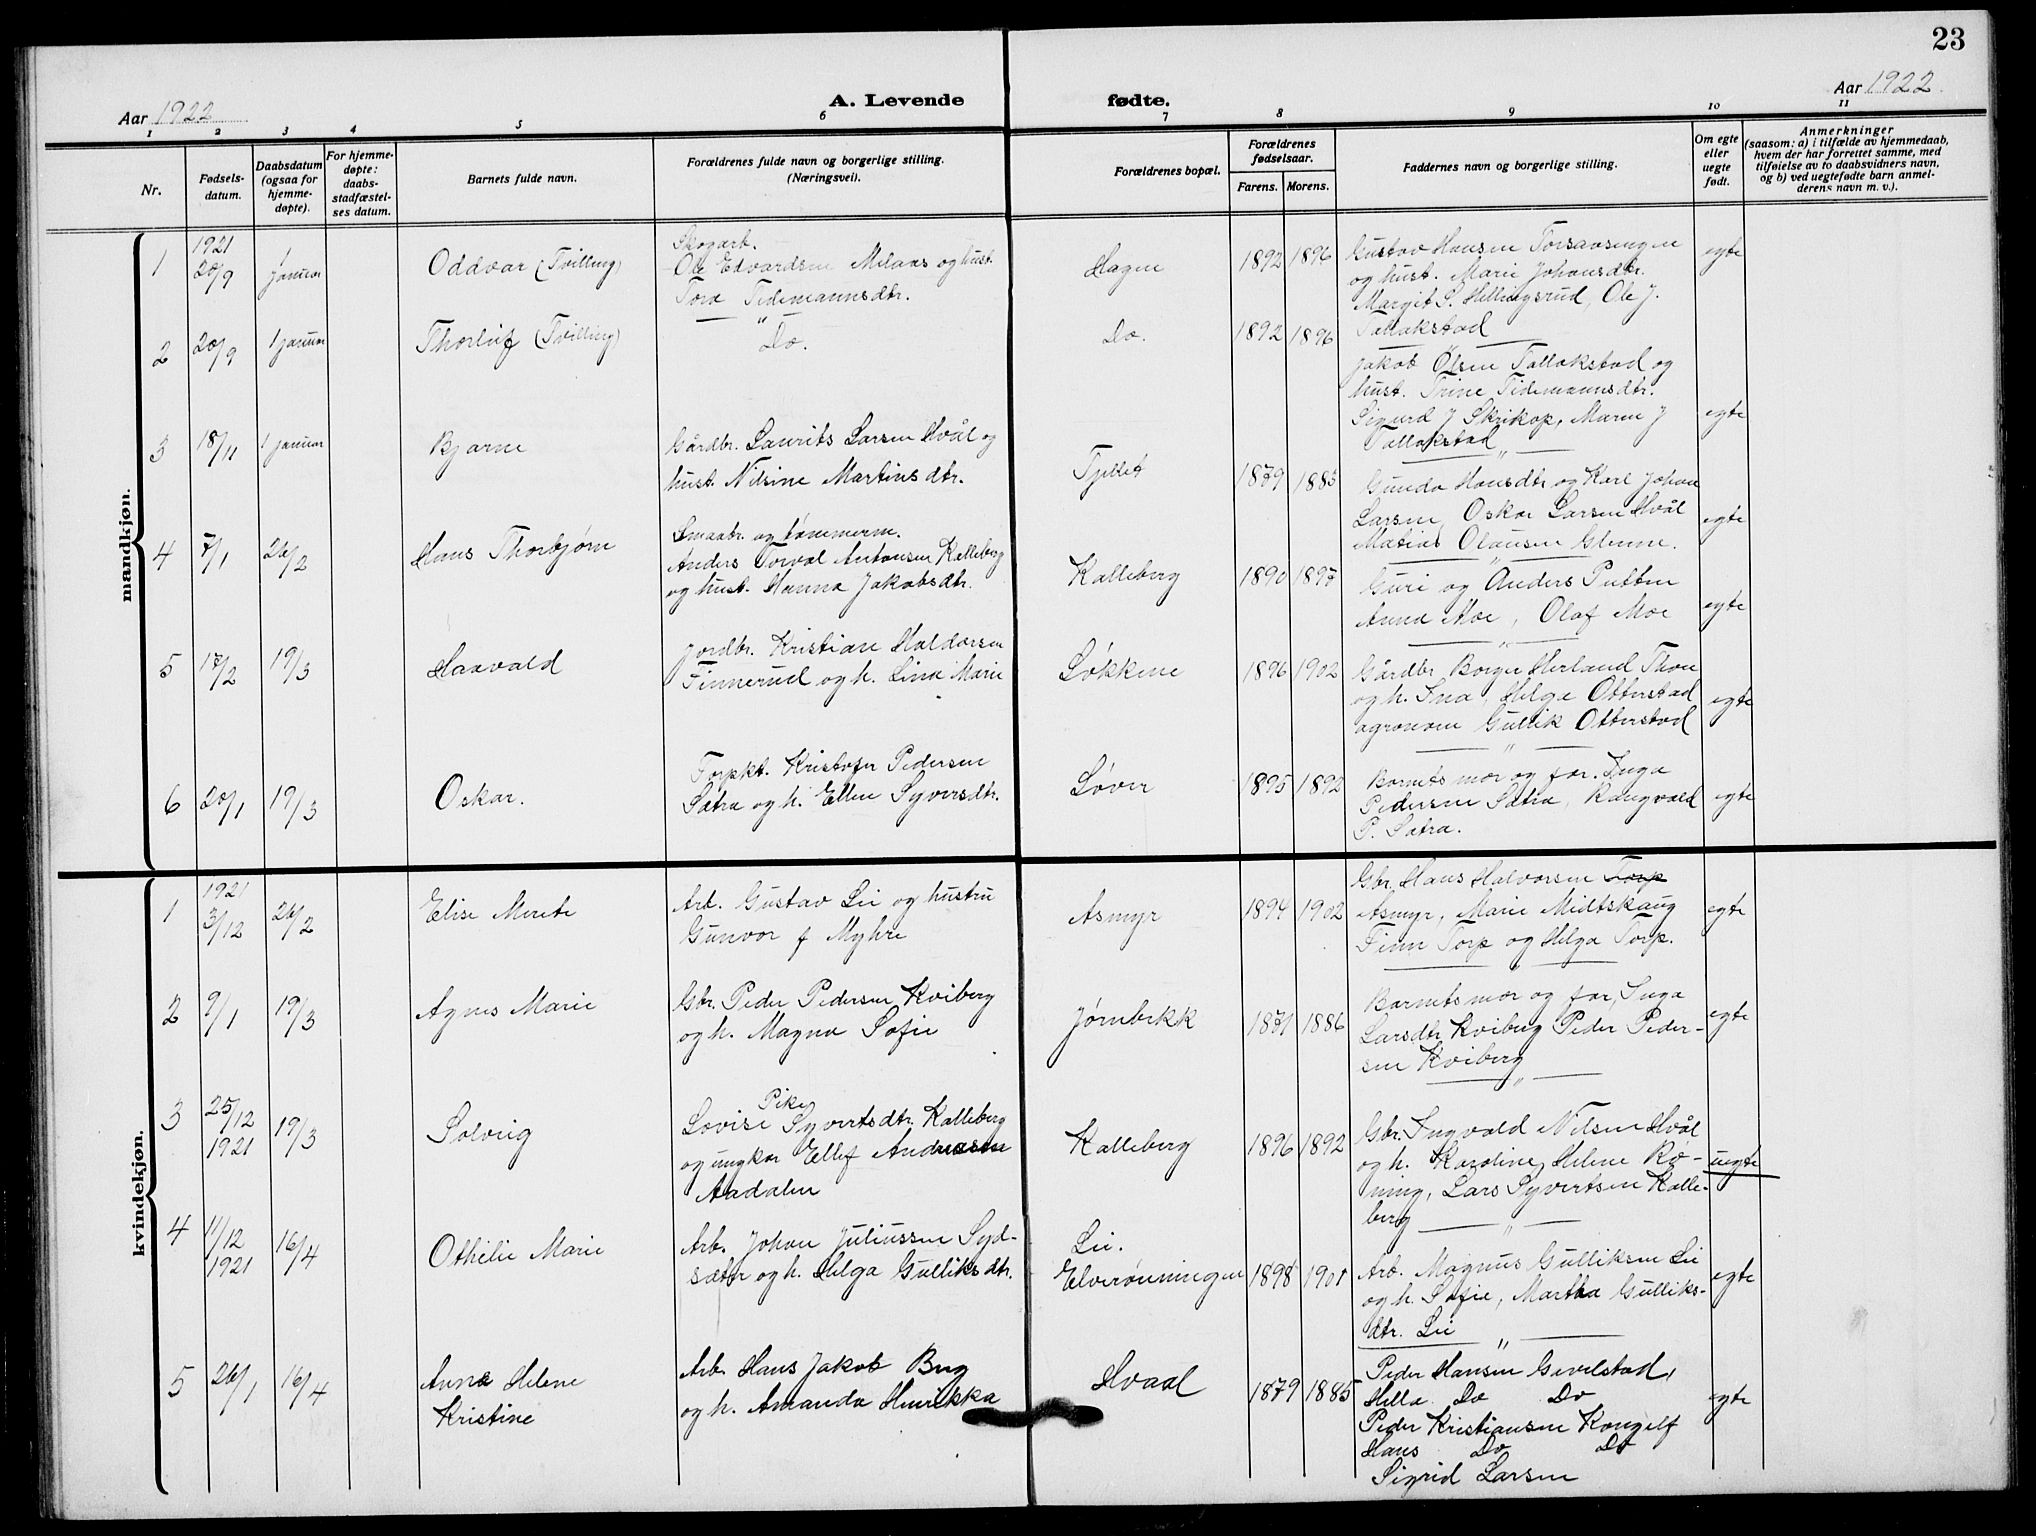 23
Aar 1922
A. Levende fødte.
Aar 1922
1 2 3 4 5 6 7 8 9 10 11
Nr.
Fødsels-
datum.
Daabsdatum
(ogsaa for
hjemme-
døpte).
For hjemme-
døpte:
daabs-
stadfæstel-
ses datum.
Barnets fulde navn.
Forældrenes fulde navn og borgerlige stilling.
(Næringsvei).
Forældrenes bopæl.
Forældrenes
fødselsaar.
Farens. Morens.
Faddernes navn og borgerlige stilling.
Om egte
eller
uegte
født.
Anmerkninger
(saasom: a) i tilfælde av hjemmedaab,
hvem der har forrettet samme, med
tilføielse av to daabsvidners navn,
og b) ved uegtefødte barn anmel-
derens navn m. v.).
mandkjøn.
1
1921
20/9
1
januar
Oddvar (Tvilling)
Skogarb.
Ole Edvardsen Melaas og hust.
Tora Tidemannsdtr.
Hagen
1892 1896
Gustav Hansen Torsaasengen
og hust. Marie Johansdtr.
Margit S. Hellingsrud, Ole J.
Tallakstad
egte
2
20/9
1 januar
Thorleif (Tvilling)
Do.
Do.
1892 1896
Jakob Olsen Tallakstad og
hust. Trine Tidemannsdtr.
Sigurd J Skrikop, Maren J
Tallakstad
egte
3
18/11
1 januar
Bjarne
Gårdbr. Laurits Larsen Hvål og
hust. Nilsine Martinsdtr.
Tjellet
1879 1885
Gunda Hansdtr og Karl Johan
Larsen, Oskar Larsen Hvål
Matias Olausen Glenne.
egte
4
7/1
26/2
Hans Thorbjørn
Smaabr. og tømmerm.
Anders Torval Antonsen Kalleberg
og hust. Hanna Jakobsdtr.
Kalleberg
1890 1897
Guri og Anders Putten
Anna Moe, Olaf Moe
egte
5
17/2
19/3
Haavald
Jordbr. Kristian Haldorsen
Finnerud og h. Lina Marie
Løkkene
1896 1902
Gårdbr Borger Herland Thon
og h. Ina, Helge Otterstad
agronom Gullik Otterstad
egte
6
20/1
19/3
Oskar.
Forpkt. Kristofer Pedersen
Satra og h. Ellen Syversdtr.
Løver
1895 1892
Barnets mor og far. Inga
Pedersen Satra, Rangvald
P. Satra.
egte
kvindekjøn.
1
1921
3/12
26/2
Elise Merete
Arb. Gustav Lie og hustru
Gunvor f Myhre
Asmyr
1894 1902
Gbr. Hans Halvorsen Torp
Asmyr, Marie Midtskaug
Finn Torp og Helga Torp.
egte
2
9/1
19/3
Agnes Marie
Gbr. Peder Pedersen Kviberg
og h. Magna Sofie
Jørnbekk
1871 1886
Barnets mor og far, Inga
Larsdtr Kviberg Peder Peder-
sen Kviberg
egte
3
25/12
1921
19/3
Solveig
Pike
Lovise Syvertsdtr. Kalleberg
og ungkar Ellef Andreassen
Aadalen
Kalleberg
1896 1892
Gbr. Ingvald Nilsen Hvål
og h. Karoline, Helene Rø-
ning, Lars Syvertsen Kalle-
berg
uegte
4
11/12
1921
16/4
Othelie Marie
Arb. Johan Juliussen Syd-
sæter og h. Helga Gulliksdtr.
Lie.
Elverønningen
1898 1901
Arb. Magnus Gulliksen Lie
og h. Sofie, Martha Gulliks-
dtr. Lie
egte
5
26/1
16/4
Anna Helene
Kristine
Arb. Hans Jakob Berg
og h. Amanda Henrikka
Hvaal
1879 1885
Peder Hansen Gevelstad,
Hella Do Do
Peder Kristiansen Kongelf
Hans Do Do
Sigrid Larsen
egte